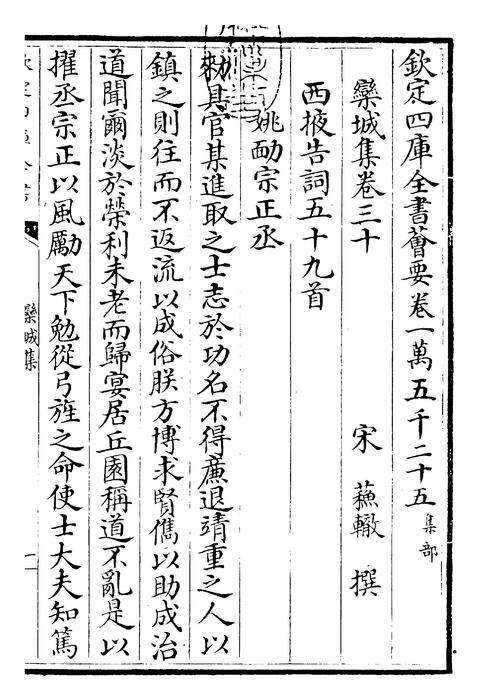 欽定四庫全書薈要卷一萬五千二十五集部
欒城集卷三十　宋　蘇轍　撰
西掖告詞五十九首
姚勔宗正丞
勑具官某進取之士志於功名不得亷退靖重之人以
鎮之則往而不返流以成俗朕方博求賢儁以助成治
道聞爾淡於榮利未老而歸宴居丘園稱道不亂是以
擢丞宗正以風勵天下勉從弓旌之命使士大夫知篤
欒城集
一